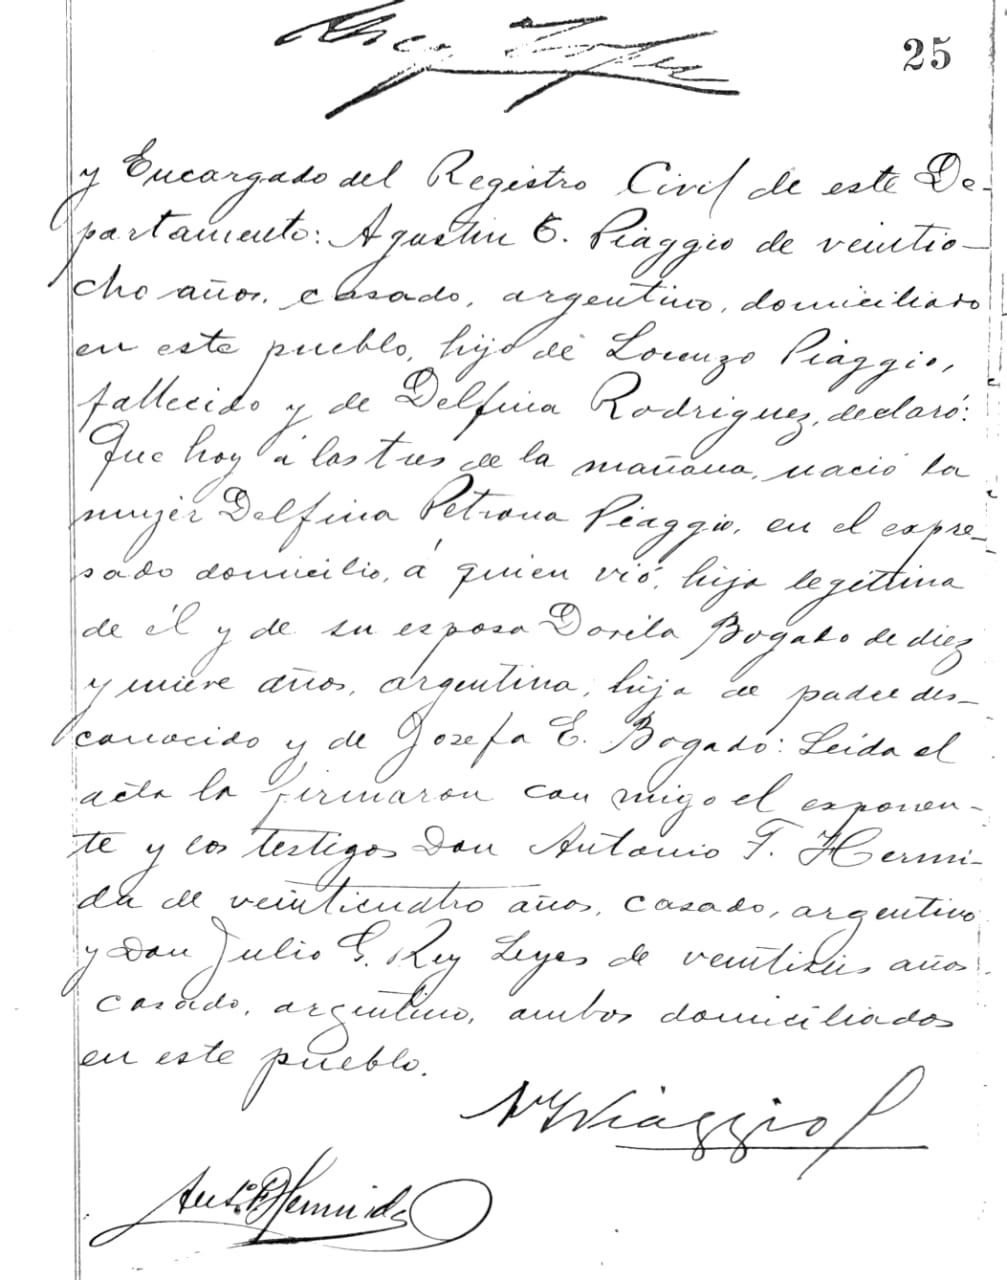 25
y Encargado del Registro Civil de este De-
partamento: Agustin E. Piaggio de veintio-
cho años, casado, argentino, domiciliado
en este pueblo, hijo de Lorenzo Piaggio,
fallecido y de Delfina Rodriguez, declaró:
Que hoy á las tres de la mañana, nació la
mujer Delfina Petrona Piaggio, en el expre-
sado domicilio, á quien vió, hija legitima
de él y de su esposa Dorila Bogado de diez
y nueve años, argentina, hija de padre des-
conocido y de Josefa E. Bogado: Leida el
acta la firmaron con migo el exponen-
te y los testigos Don Antonio F. Hermi-
da de veinticuatro años, casado, argentino
y Don Julio G. Rey Leyes de veintiseis años
casado, argentino, ambos domiciliados
en este pueblo.
Piaggio
Anto. F. Hermida